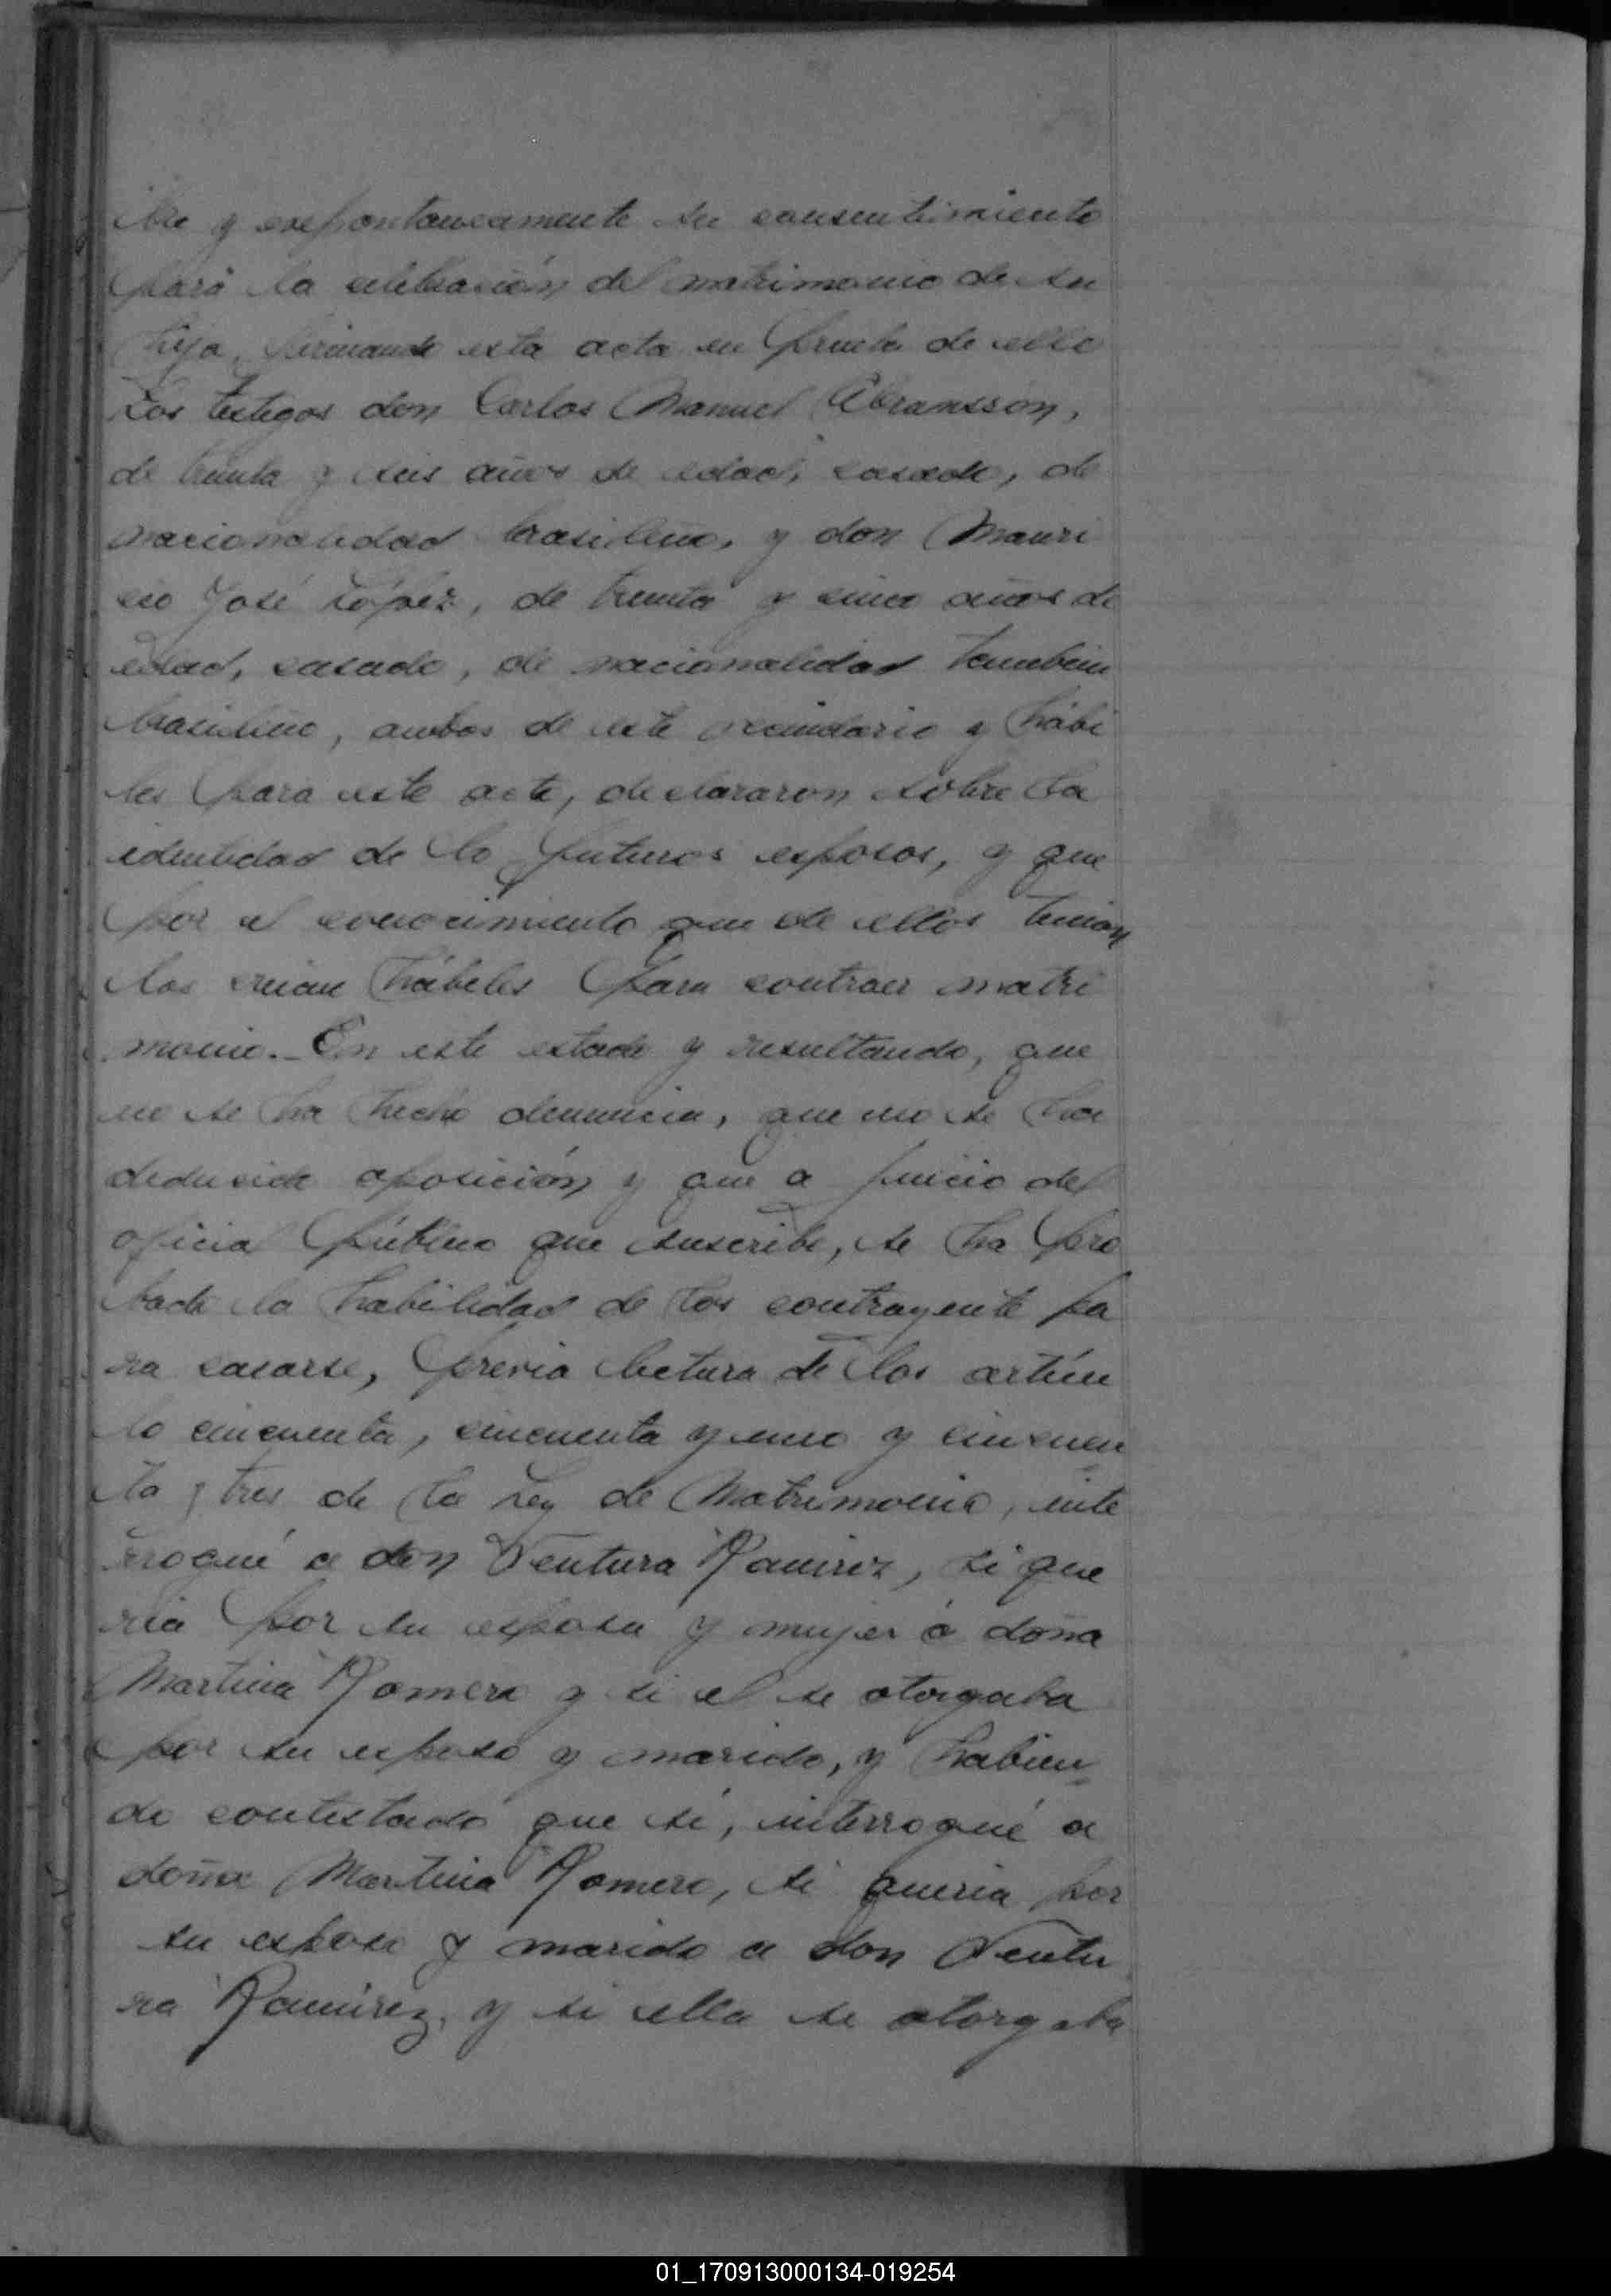 bre y espontaneamente su consentimiento
para la celebración del matrimonio de su
hija, firmando esta acta en prueba de ello
Los testigos don Carlos Manuel Abransson,
de treinta y seis años de edad, casado, de
nacionalidad brasileño, y don Mauri
cio José López, de treinta y cinco años de
edad, casado, de nacionalidad tambien
brasileño, ambos de este vecindario y hábi
les para este acto, declararon sobre la
identidad de lo futuros esposos, y que
por el conocimiento que de ellos tenian
los creian hábeles para contraer matri
monio.- En este estado y resultando, que
no se ha hecho denuncia, que no se ha
deducido oposición y que a juicio del
oficial público que suscribe, se ha pro
bado la habilidad de los contrayente pa
ra casarse, previa lectura de los artícu
lo cincuenta, cincuenta y uno y cincuen
ta y tres de la Ley de Matrimonio, inte
rrogué a don Ventura Ramirez, si que
ria por su esposa y mujer á doña
Martina Romero y si el se otorgaba
por su esposo y marido, y habien
do contestado que sí, interrogué a
doña Martina Romero, si queria por
su esposo y marido a don Ventu
ra Ramírez, y si ella se otorgaba
01_170913000134-019254